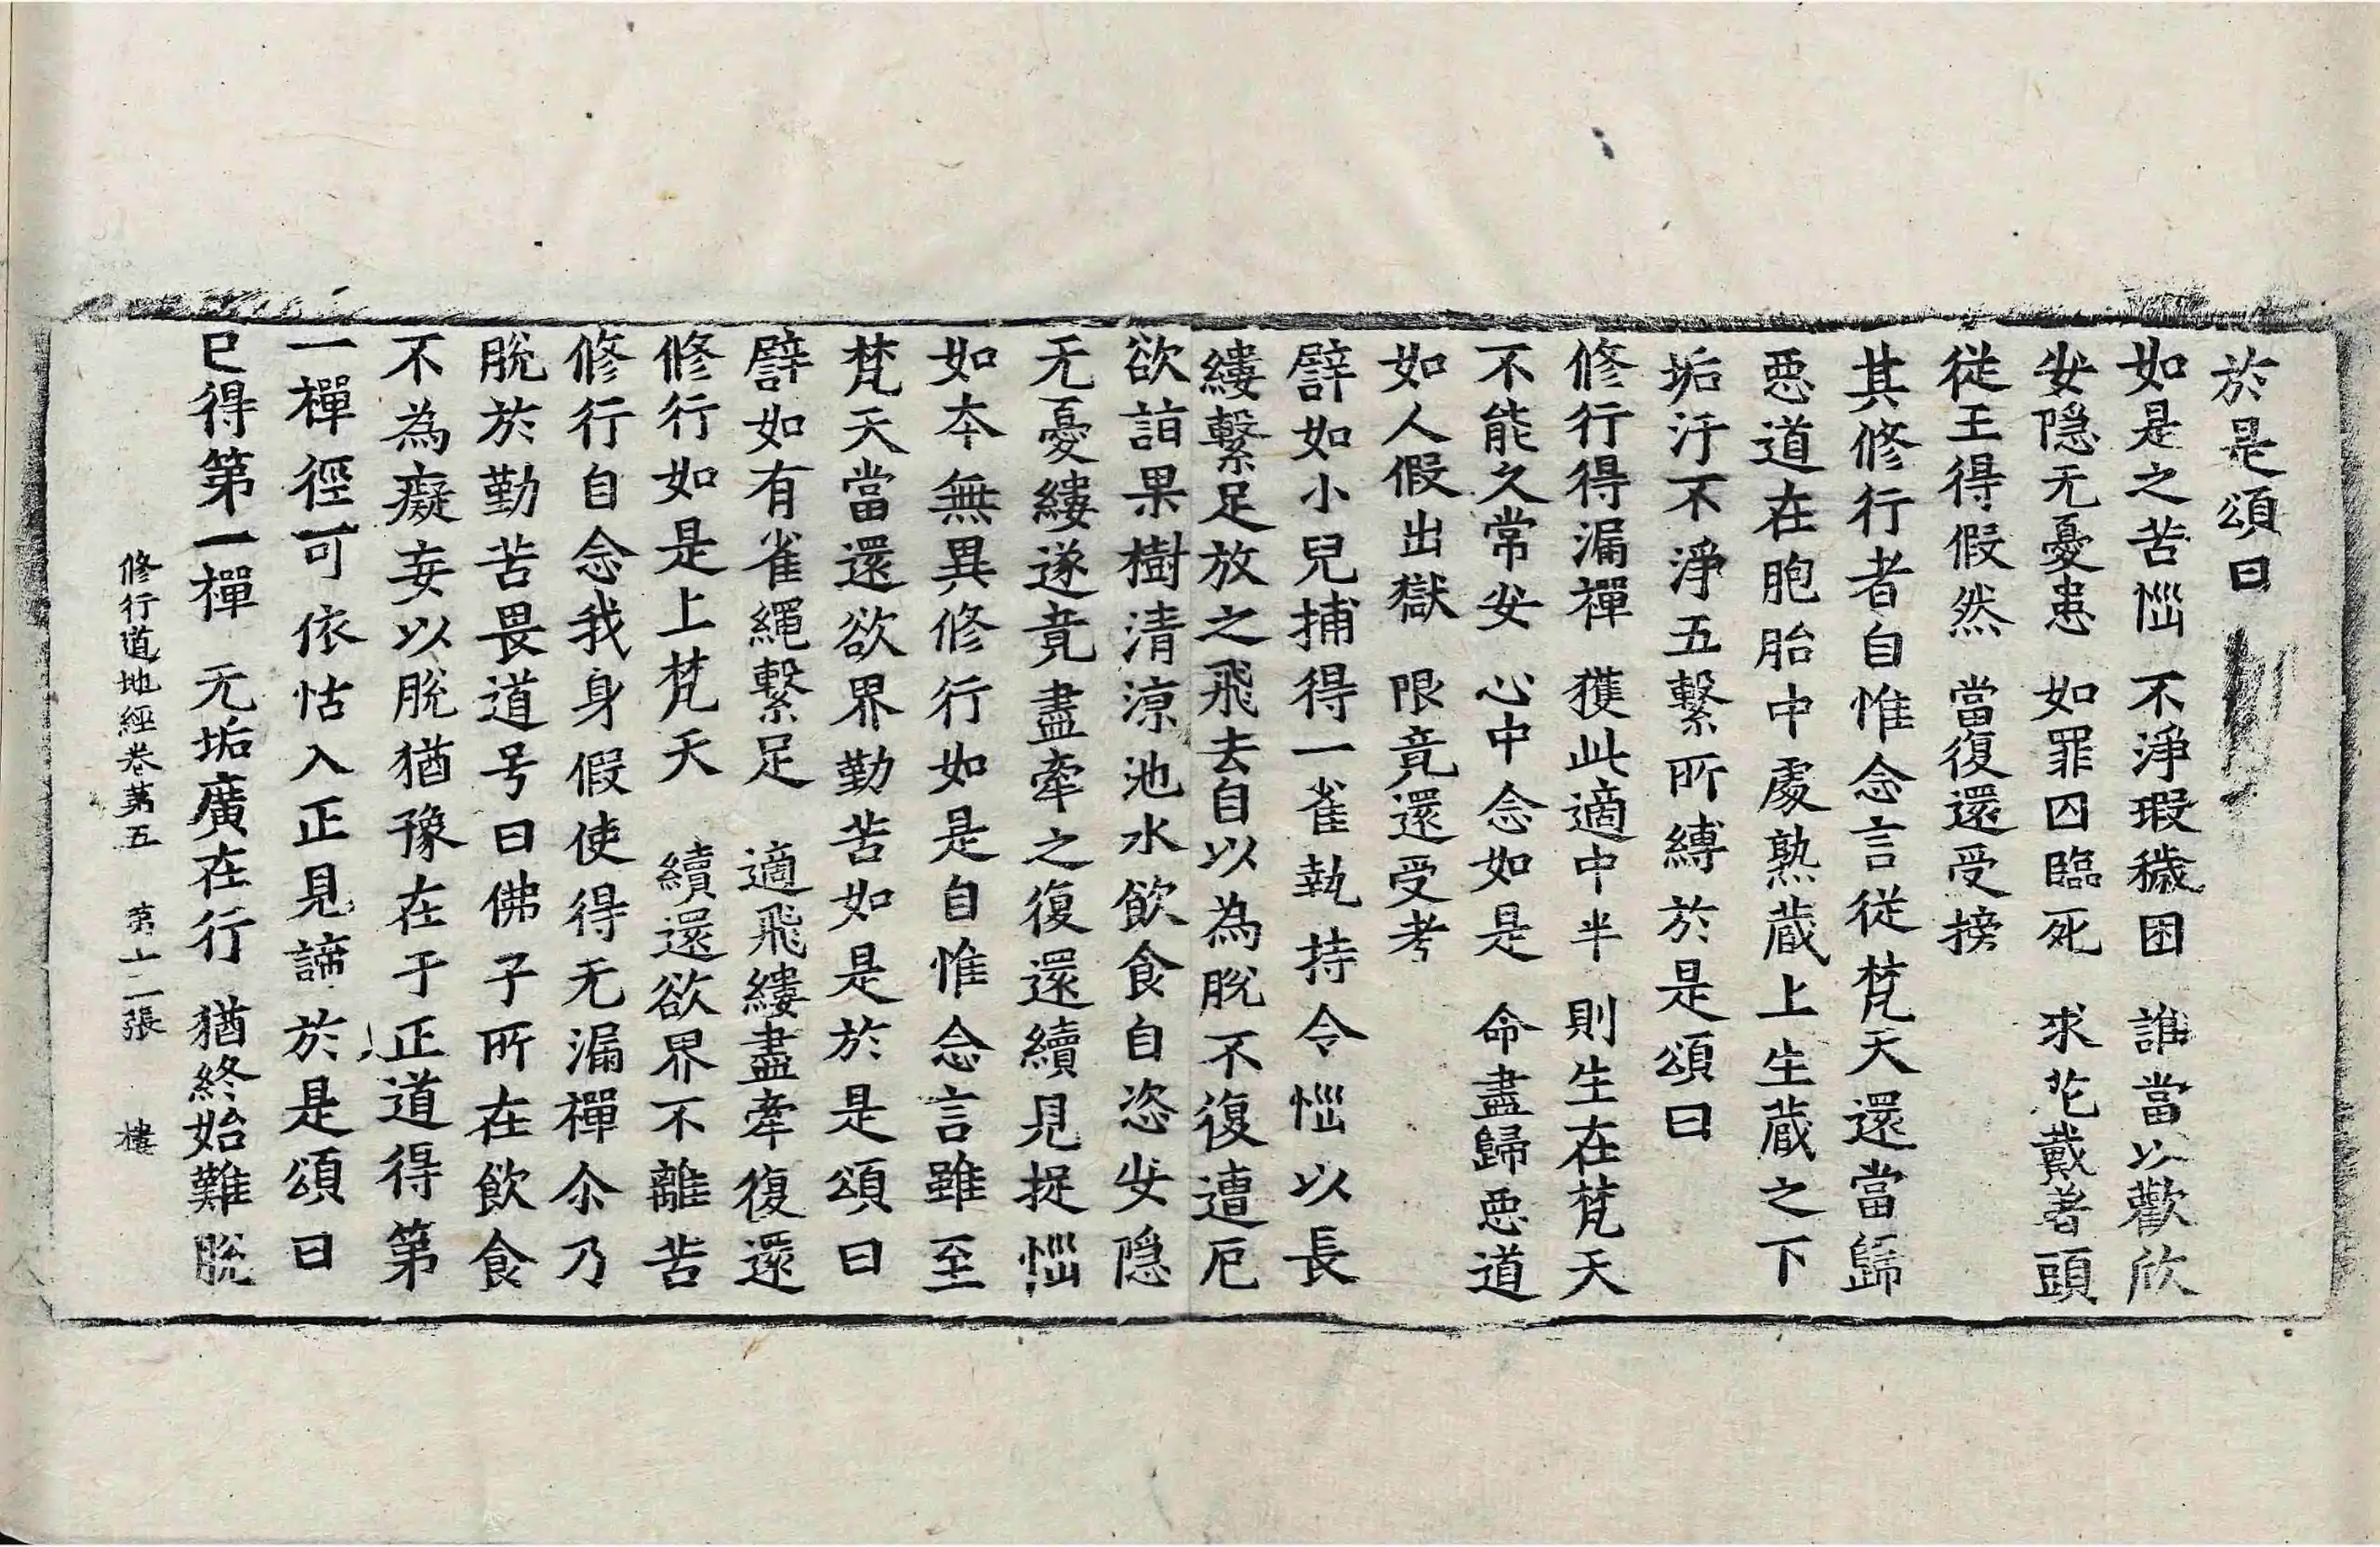 於是頌曰
如是之苦惱　不淨瑕穢困　誰當以歡欣
安隐无憂患　如罪囚臨死　求花戴著頭
從王得假然　當復還受搒
其修行者自惟念言從梵天還當歸
惡道在胞胎中處熟蔵上生蔵之下
垢汙不淨五繫所縛於是頌曰
修行得漏禪　獲此適中半　則生在梵天
不能久常安　心中念如是　命盡歸惡道
如人假出獄　限竟還受考
譬如小兒捕得一雀執持令惱以長
縷繫足放之飛去自以為脫不復遭厄
欲詣果樹清涼池水飲食自恣安隐
无憂縷遂竟盡牽之復還續見捉惱
如夲無異修行如是自惟念言雖至
梵天當還欲界勤苦如是於是頌曰
譬如有雀繩繫足　適飛縷盡牽復還
修行如是上梵天　續還欲界不離苦
修行自念我身假使得无漏禪尒乃
脫於勤苦畏道号曰佛子所在飲食
不為癡妄以脫猶豫在于正道得第
一禪徑可依怙入正見諦於是頌曰
已得第一禪　无垢廣在行　猶終始難脫
修行道地經卷第五　第十二張　樓